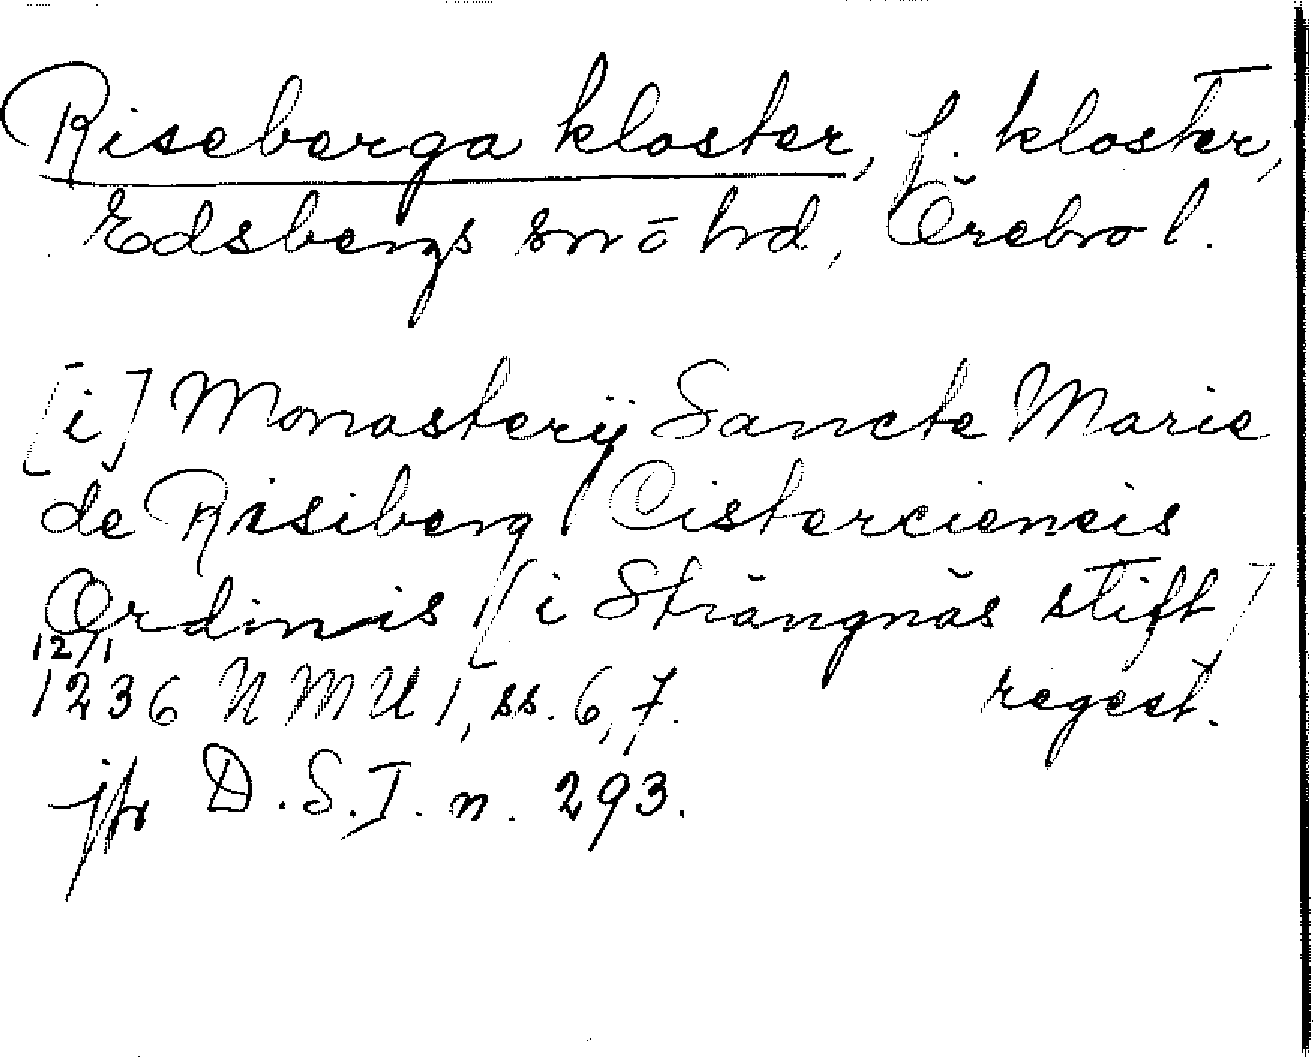 Riseberga kloster, f. kloster,
Edsbergs sn o hd, Örebro l.
[i] Monasterij Sancte Marie
de Risiberg Cisterciensis
Ordinis [i Strängnäs stift]
12/1
1236 NMU 1, ss. 6, 7. regest.
jfr D.S.I. n. 293.